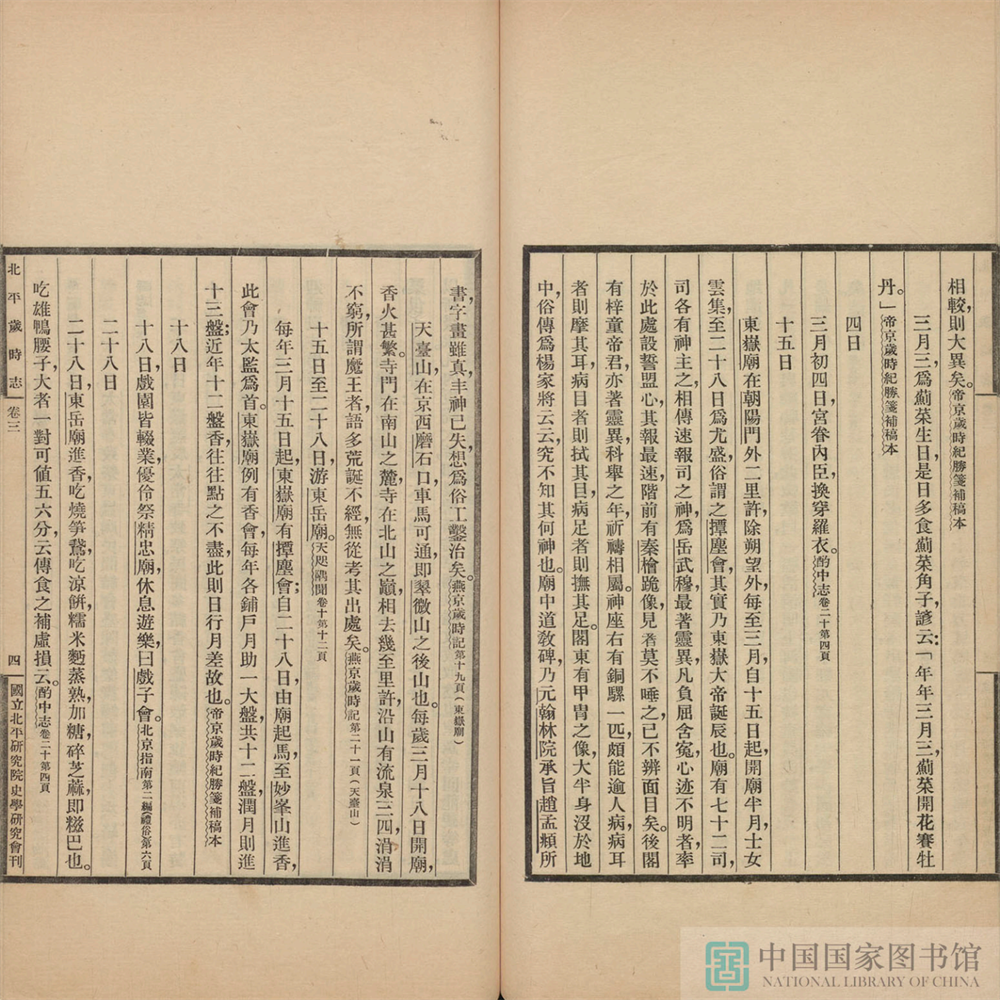 相較則大異矣。帝京歲時紀勝箋補稿本
三月三爲薊菜生日是日多食薊菜角子，諺云：「年年三月三，薊菜開花賽牡
丹。」帝京歲時紀勝箋補稿本
四日
三月初四日，宮眷內臣，換穿羅衣。酌中志卷二十第四頁
十五日
東嶽廟在朝陽門外二里許，除朔望外，每至三月，自十五日起，開廟半月，士女
雲集，至二十八日爲尤盛，俗謂之撣塵會，其實乃東嶽大帝誕辰也。廟有七十二司，
司各有神主之，相傳速報司之神，爲岳武穆，最著靈異，凡負屈含寃，心迹不明者，率
於此處設誓盟心，其報最速，階前有秦檜跪像，見者莫不唾之，已不辨面目矣。後閣
有梓童帝君，亦著靈異，科舉之年，祈禱相屬。神座右有銅騾一匹，頗能逾人病，病耳
者則摩其耳，病目者則拭其目，病足者則撫其足。閣東有甲胄之像，大半身沒於地
中，俗傳爲楊家將云云，究不知其何神也。廟中道敎碑，乃元翰林院承旨趙孟頫所
書，字畫雖真，丰神已失，想爲俗工鑿治矣。燕京歲時記第十九頁（東嶽廟）
天臺山在京西磨石口，車馬可通，即翠微山之後山也。每歲三月十八日開廟，
香火甚繁。寺門在南山之麓，寺在北山之巔，相去幾至里許，沿山有流泉三四，涓涓
不窮，所謂魔王者，語多荒誕不經，無從考其出處矣。燕京歲時記第二十一頁（天臺山）
十五日至二十八日，游東岳廟。天咫隅聞卷十第十二頁
每年三月十五日起，東嶽廟有撣塵會；自二十八日，由廟起馬，至妙峯山進香，
此會乃太監爲首。東嶽廟例有香會，每年各鋪戶月助一大盤，共十二盤，潤月則進
十三盤；近年十二盤香，往往點之不盡，此則日行月差故也。帝京歲時紀勝箋補稿本
十八日
十八日，戲園皆輟業，優伶祭精忠廟，休息遊樂，曰戲子會。北京指南第二編（禮俗）第六頁
二十八日
二十八日，東岳廟進香，吃燒笋鵞，吃涼餅，糯米麪蒸熟，加糖，碎芝蔴，即糍巴也。
吃雄鴨腰子，大者一對可値五六分，云傳食之補虛損云。酌中志卷二十第四頁
北平歲時志 卷三 四 國立北平研究院史學研究會刊
中国国家图书馆
NATIONAL LIBRARY OF CHINA